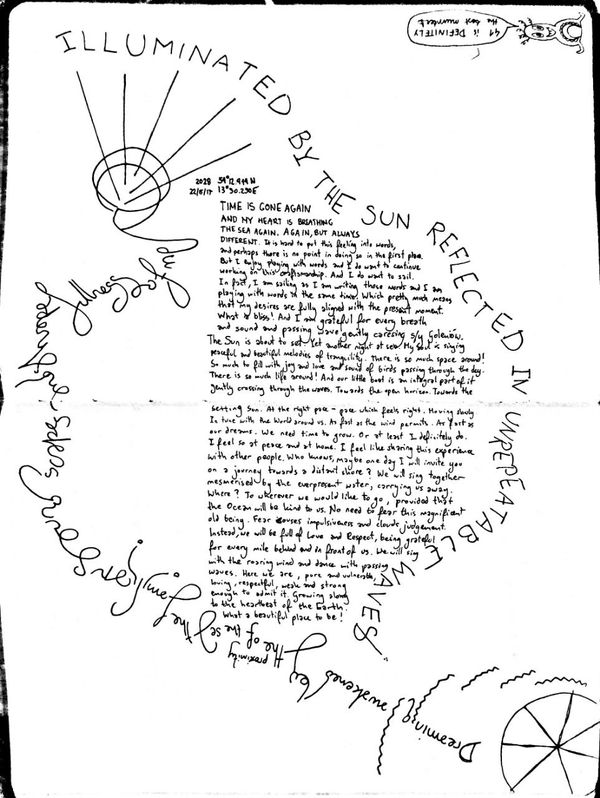 DEFINITELY
the best number
ILLUMINATED BY THE SUN REFLECTED IN UNREPEATABLE WAVES
2028 54°12.944 N
22/5/17 13°30.230 E
TIME IS GONE AGAIN
AND MY HEART IS BREATHING
THE SEA AGAIN. AGAIN, BUT ALWAYS
DIFFERENT. It is hard to put this feeling into words,
and perhaps there is no point in doing so in the first place.
But I enjoy playing with words and I do want to continue
working on this craftsmanship. And I do want to sail.
In fact, I am sailing as I am writing those words and I am
playing with words at the same time. Which pretty much means
that my desires are fully aligned with the present moment.
What a bliss! And I am grateful for every breath
and sound and passing wave gently caresing s/y Goleniów.
The Sun is about to set. Yet another night at sea. My soul is singing
peaceful and beautiful melodies of tranquility. There is so much space around!
So much to fill with joy and love and sound of birds passing through the day.
There is so much life around! And our little boat is an integral part of it
gently crossing through the waves. Towards the open horizon. Towards the
Setting Sun. At the right pace - pace which feels right. Moving slowly
In tune with the World around us. As fast as the wind permits. As fast as
our dreams. We need time to grow. Or at least I definitely do.
I feel so at peace and at home. I feel like sharing this experience
with other people. Who knows, maybe one day I will invite you
on a journey towards a distant shore? We will sing together
mesmerised by the everpresent water, carrying us away.
Where? To wherever we would like to go, provided that
the Ocean will be kind to us. No need to fear this magnificent
old being. Fear couses impulsiveness and clouds judgement.
Instead, we will be full of Love and Respect, being grateful
for every mile behind and in front of us. We will sing
with the roaring wind and dance with passing
waves. Here we are, pure and vulnerable,
loving, respectful, weak and strong
enough to admit it. Growing along
to the heartbeat of the Earth.
What a beautiful place to be!
Dreaming awakened by
the proximity
of the
familiar